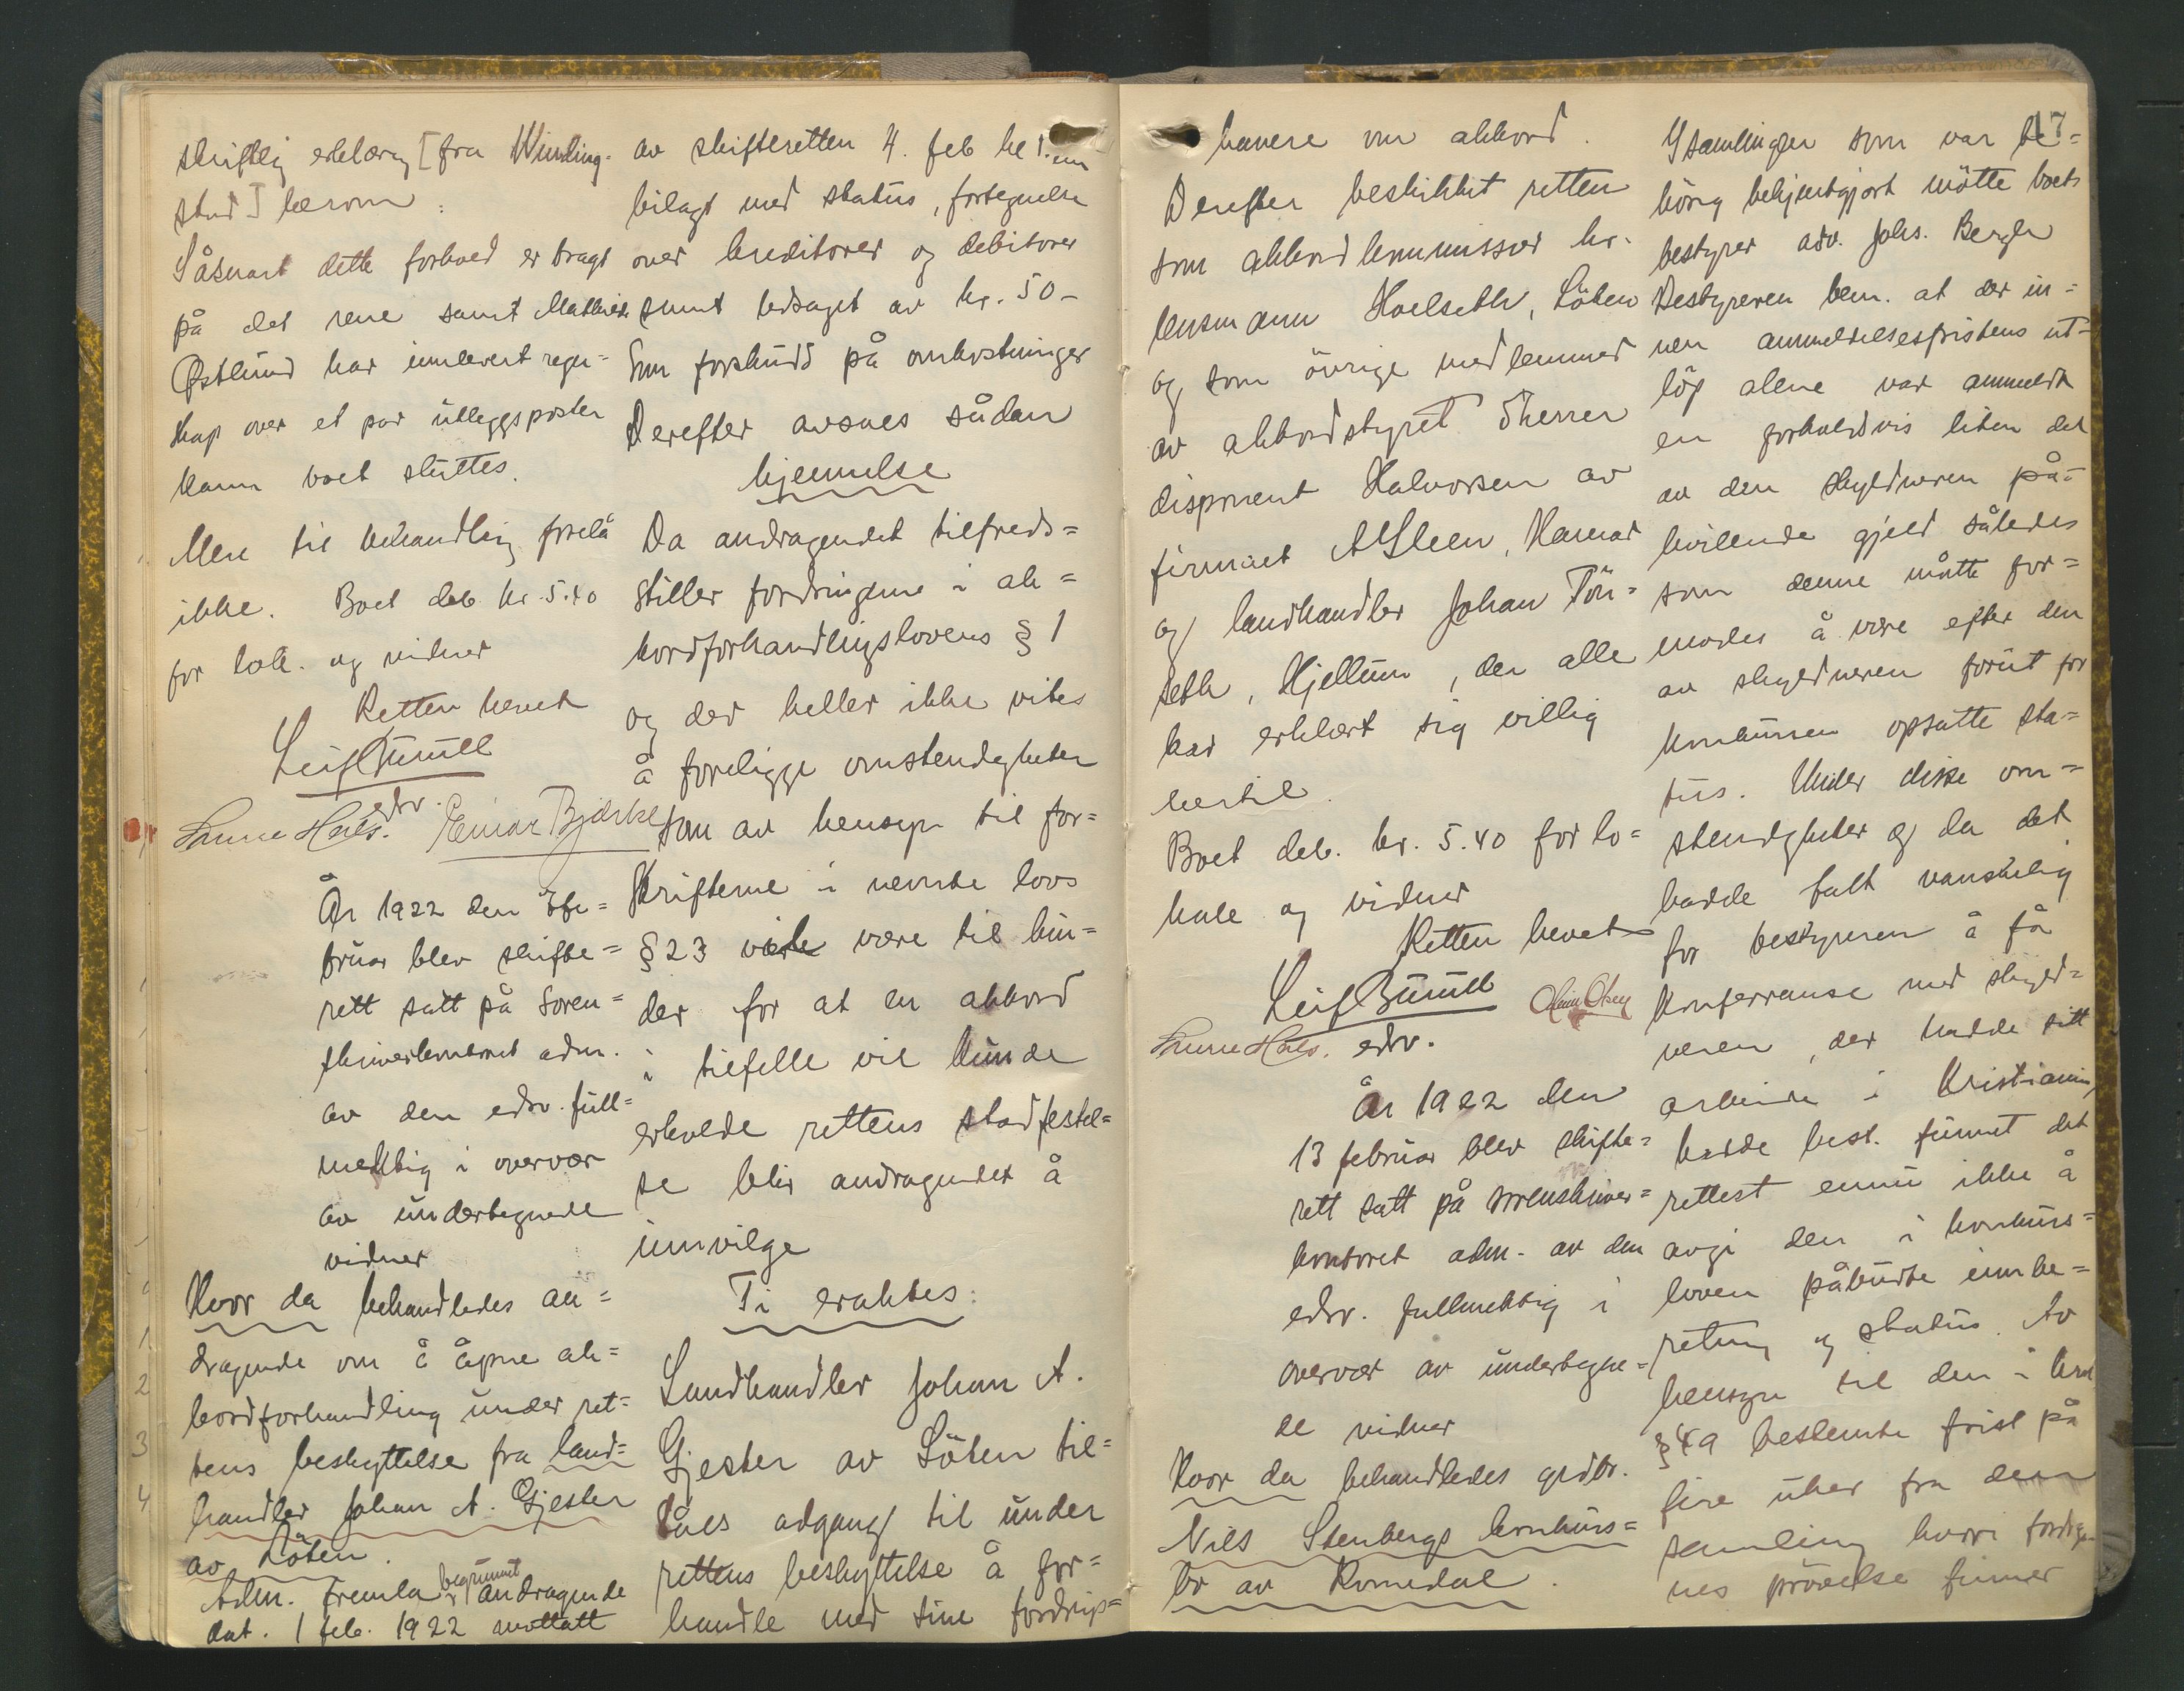 skriftlig erklæring [fra Winding-
stad] herom.
Såsnart dette forhold er bragt
på det rene samt Mathias
Østlund har innlevert regn=
skap over et par utleggsposter
kann boet sluttes.
Mere til behandling forelå
ikke. Boet deb. kr. 5.40
for lok. og vidner
Retten hevet
Leif Bünull
edsv.
Hals. Einar Bjørke
År 1922 den 8 fe=
bruar blev skifte=
rett satt på Soren=
skriverkontoret adm.
av den edsv. full=
mektig i overvær
av undertegnede
vidner
Hvor da behandledes an=
dragende om å åpne ak=
kordforhandling under ret=
tens beskyttelse fra land=
handler Johan A. Gjester
av Löten.
Adm. fremla begrunnet andragende
dat. 1 feb. 1922 mottatt
av skifteretten 4. feb
bilagt med status, fortegnelse
over kreditorer og debitorer
samt ledsaget av kr. 50-
som forskudd på omkostninger
Derefter avsaes sådan
kjennelse
Da andragendet tilfreds=
stiller fordringene i ak=
kordforhandlingslovens § 1
og der heller ikke vites
å foreligge omstendigheter
som av hensyn til for=
skrifterne i nevnte lovs
§ 23 være til hin=
der for at en akkord
i tilfelle vil kunde
erholde rettens stadfestel=
se blir andragendet å
innvilge
Ti eraktes:
Landhandler Johan A.
Gjester av Löten til=
låes adgang til under
rettens beskyttelse å for=
handle med sine fordrings=
havere om akkord.
Derefter beskikket retten
som akkordkommissær hr.
lensmann Hoelseth, Löten
og som övrige medlemmer
av akkordstyret d'herrer
disponent Halvorsen av
firmaet A Steen, Hamar
og landhandler Johan Tön=
seth, Hjellum, der alle
har erklært sig villig
hertil.
Boet deb. kr. 5.40 for lo=
kale og vidner
Retten hevet
Leif Bünull Olsen
Hals. edsv.
År 1922 den
13 februar blev skifte=
rett satt på sorenskriver=
kontoret adm. av den
edsv. fullmektig i
overvær av undertegne=
de vidner
Hvor da behandledes grdbr.
Nils Stenbergs konkurs=
bo av Romedal.
17
I samlingen som var be=
hörig bekjentgjort mötte boets
bestyrer adv. Johs. Bergh
Bestyreren bem. at der in=
nen anmeldelsesfristens ut=
löp alene var anmeldt
en forholdsvis liten del
av den skyldneren på=
hvilende gjeld således
som denne måtte for=
modes å være efter den
av skyldneren forut for
konkursen opsatte sta=
tus. Under disse om=
stendigheter og da det
hadde falt vanskelig
for bestyreren å få
konferranse med skyld=
neren, der hadde sitt
arbeide i Kristiania,
hadde best. funnet det
rettest ennu ikke å
avgi den i konkurs=
loven påbudte innbe=
retning og status. Av
hensyn til den i
§ 49 bestemte frist på
fire uker fra den
samling hvori
nes prövelse finner